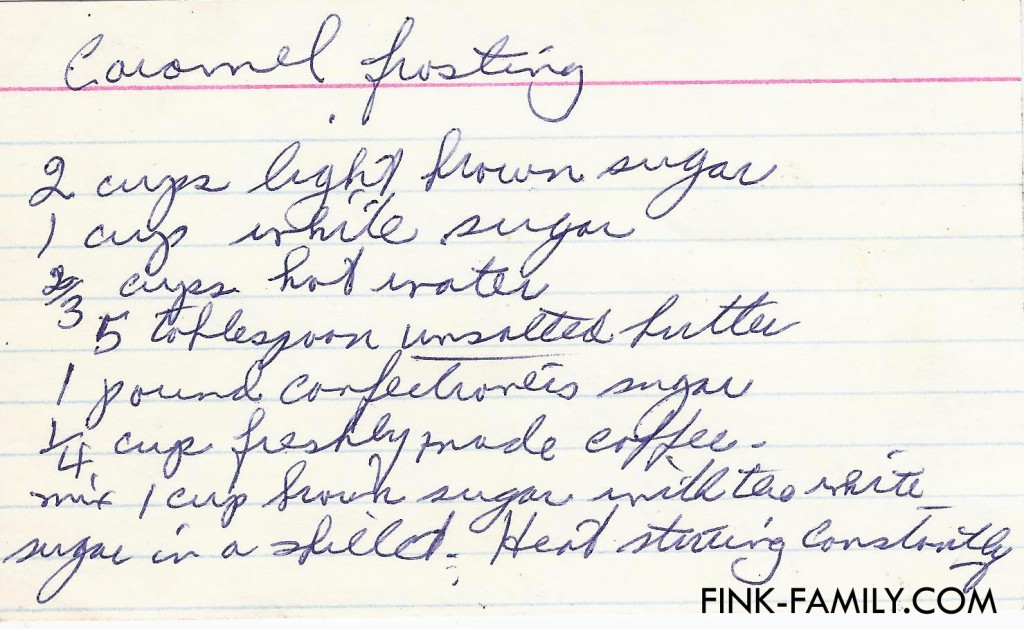 Caramel frosting
2 cups light brown sugar
1 cup white sugar
2/3 cups hot water
5 tablespoon unsalted butter
1 pound confectioners sugar
1/4 cup freshly made coffee.
mix 1 cup brown sugar with the white
sugar in a skillet. Heat stirring constantly
FINK-FAMILY.COM